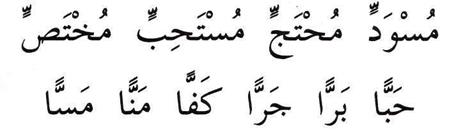 مُسْوَدٍّ مُحْتَجٍّ مُسْتَحِبٍّ مُخْتَصٍّ
حَبًّا بَرًّا جَرًّا كَفًّا مَنًّا مَسًّا